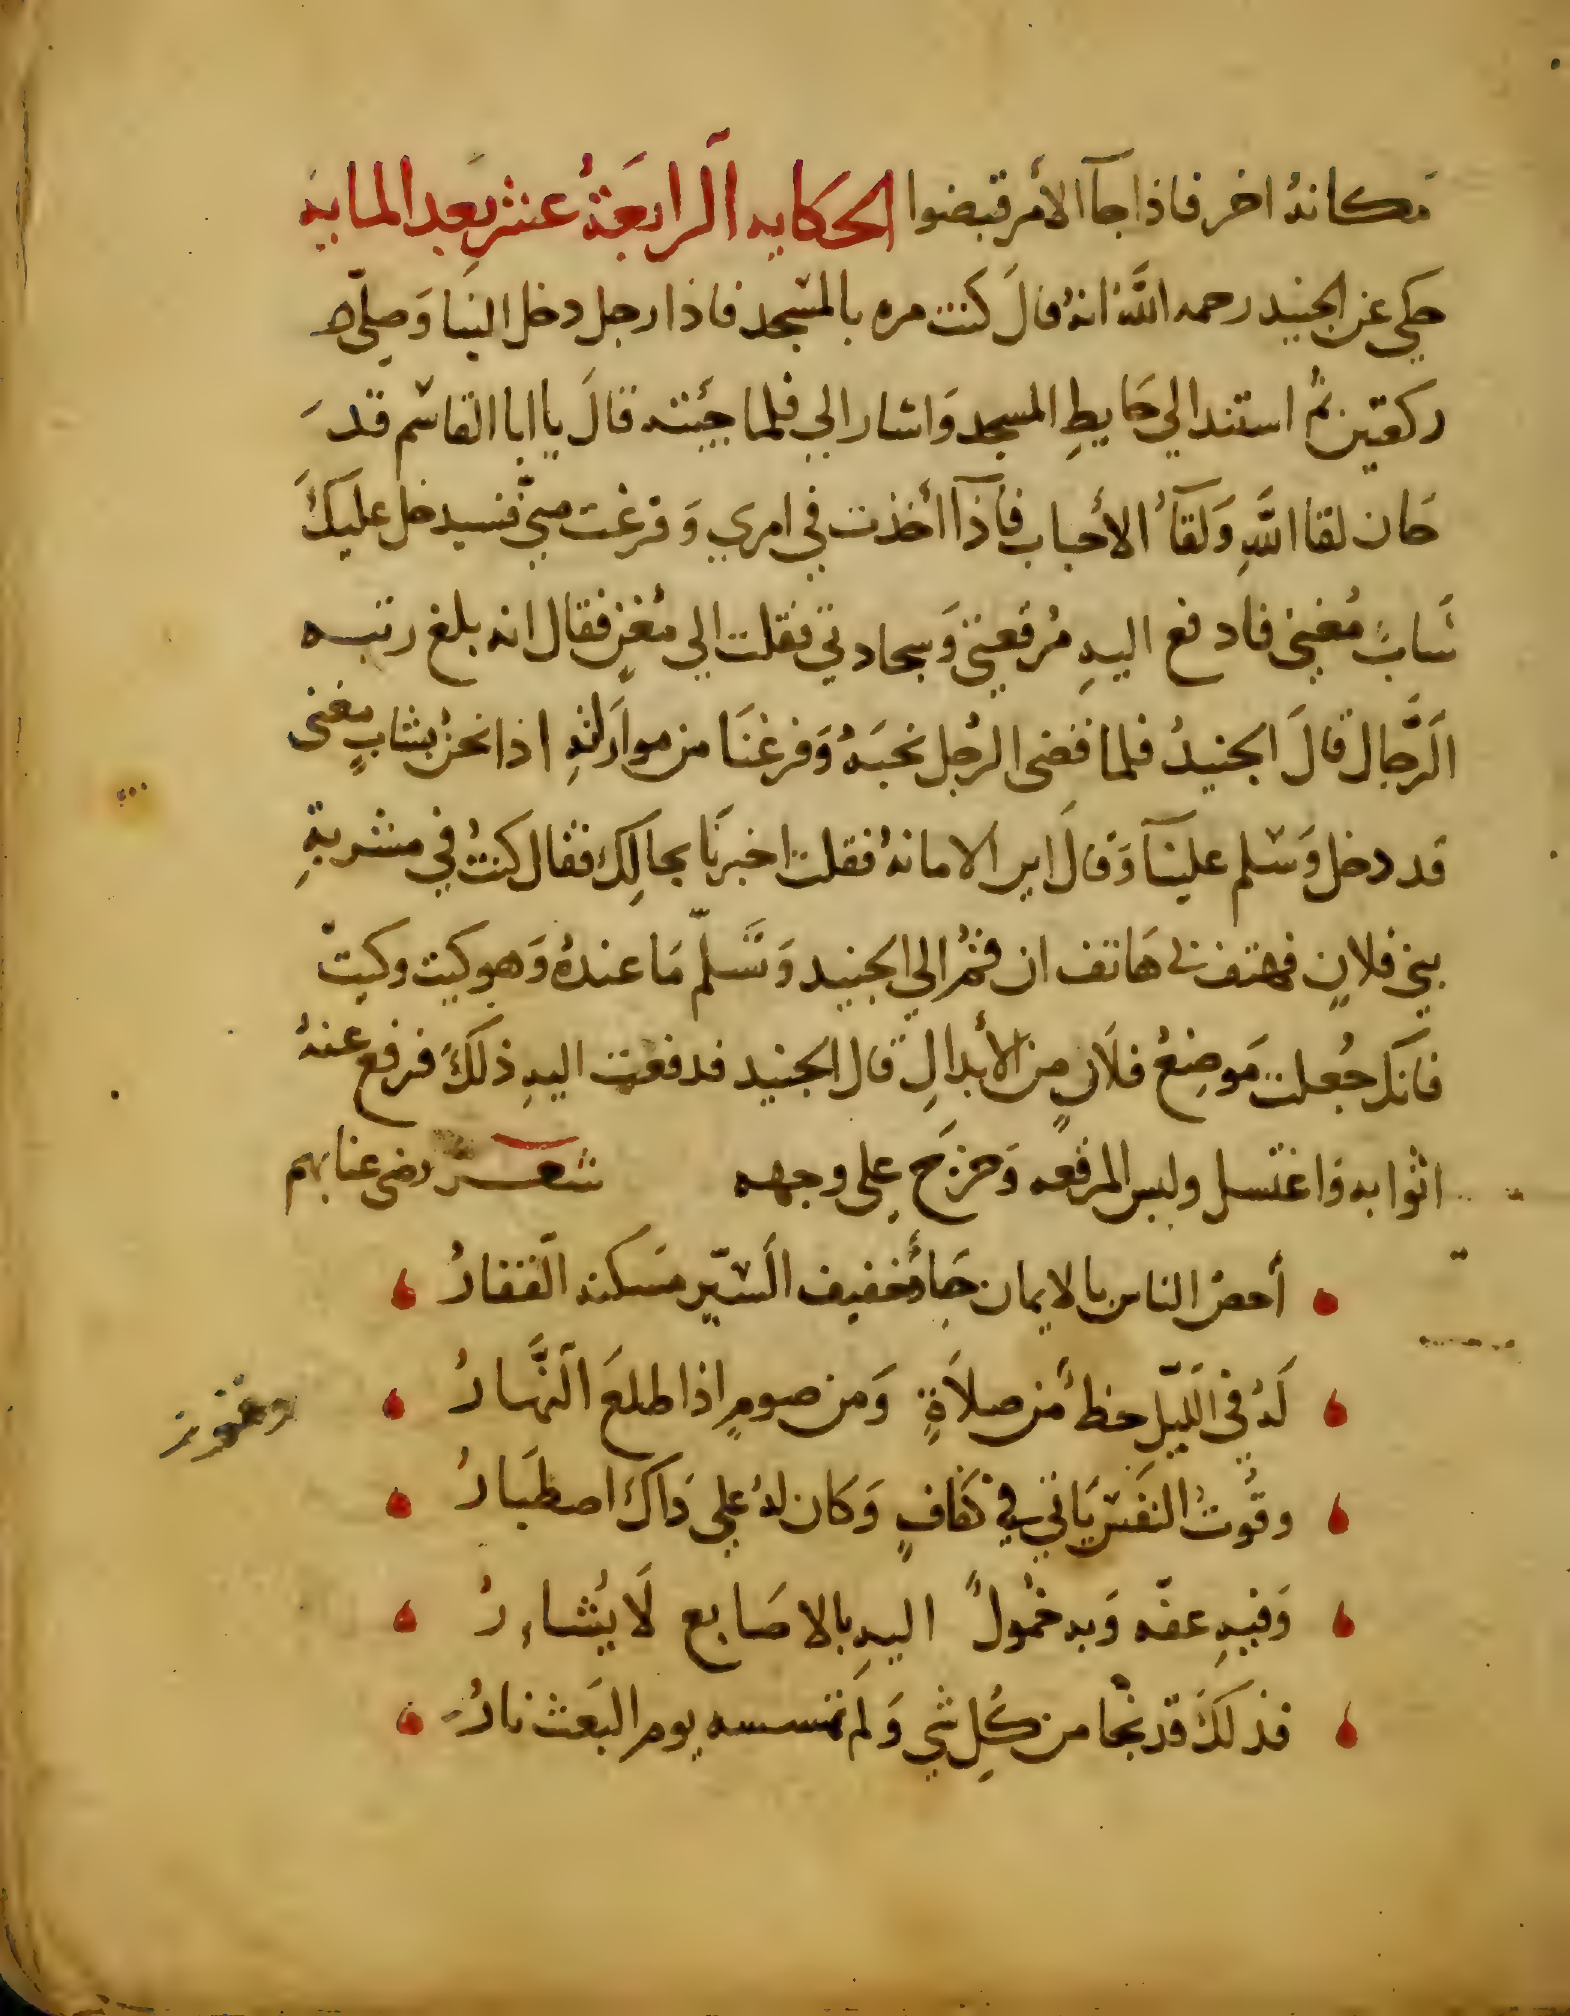 مكانهُ اخر فاذا جآ الأمر قبضوا الحكايه الرابعةُ عشر بعد المايه
حكي عن الجنيد رحمه اللَّه انهُ قالَ كنت مره بالمسجد فاذا رجل دخل الينا وَصلّى
ركعتين ثمُ استند الي حَايطِ المسجد وَاشار الي فلما جيَته قالَ يا ابا القاسم قد
حَان لقا اللَّهِ وَلقآُ الأحباب فاذآ أخذت في امري وَفرغت مني فسيدخل عليكَ
شَابٌ مُغني فادفع اليهِ مُرقعتي وَسجادتي فقلت الي مُغنٍ فقال انه بلغ رتبه
الَرَّجال قالَ الجنيدُ فلما قضى الرجُل نحبَهُ وَفرغنَا من موارَاتهِ اذا نحنُ بشابٍ مغنى
قد دخل وَسَلم علينآ وَقالَ اين الامانهُ فقلت اخبرنَا بحالِكَ فقال كنتُ في مشربةِ
بني فلانٍ فهتف بي هَاتف ان قمُ الي الجنيد وَتسَلَّم مَا عندهُ وَهو كيت وكيت
فانكَ جُعلت مَوضِعُ فلاَنٍ من الأبدالِ قال الجنيد فدفعت اليهِ ذلكَ فرفع عنهُ
اثوابه وَاغتسل ولبس المرقعه وَخرَج علي وجهه شعر رضى عنا بهم
أحصُ الناس بالايمان حَاذٌ خفيف السَيّر مسَكنه القفارُ
لَهُ في الليَلِ حظٌ من صلاَةٍ وَمن صومٍ اذا طلعَ النَّهارُ
وقوُتُ النفَس يَاتي في كفَافٍ وَكان لهُ علي ذَاكَ اصطبَارُ
وَفيهِ عفّه وَبه خمُولٌ اليهِ بالاصَابع لَا يُشاءرُ
فذلكَ قد نجَا من كُلِ شي وَلم تمسسه يوم البَعث نارُ